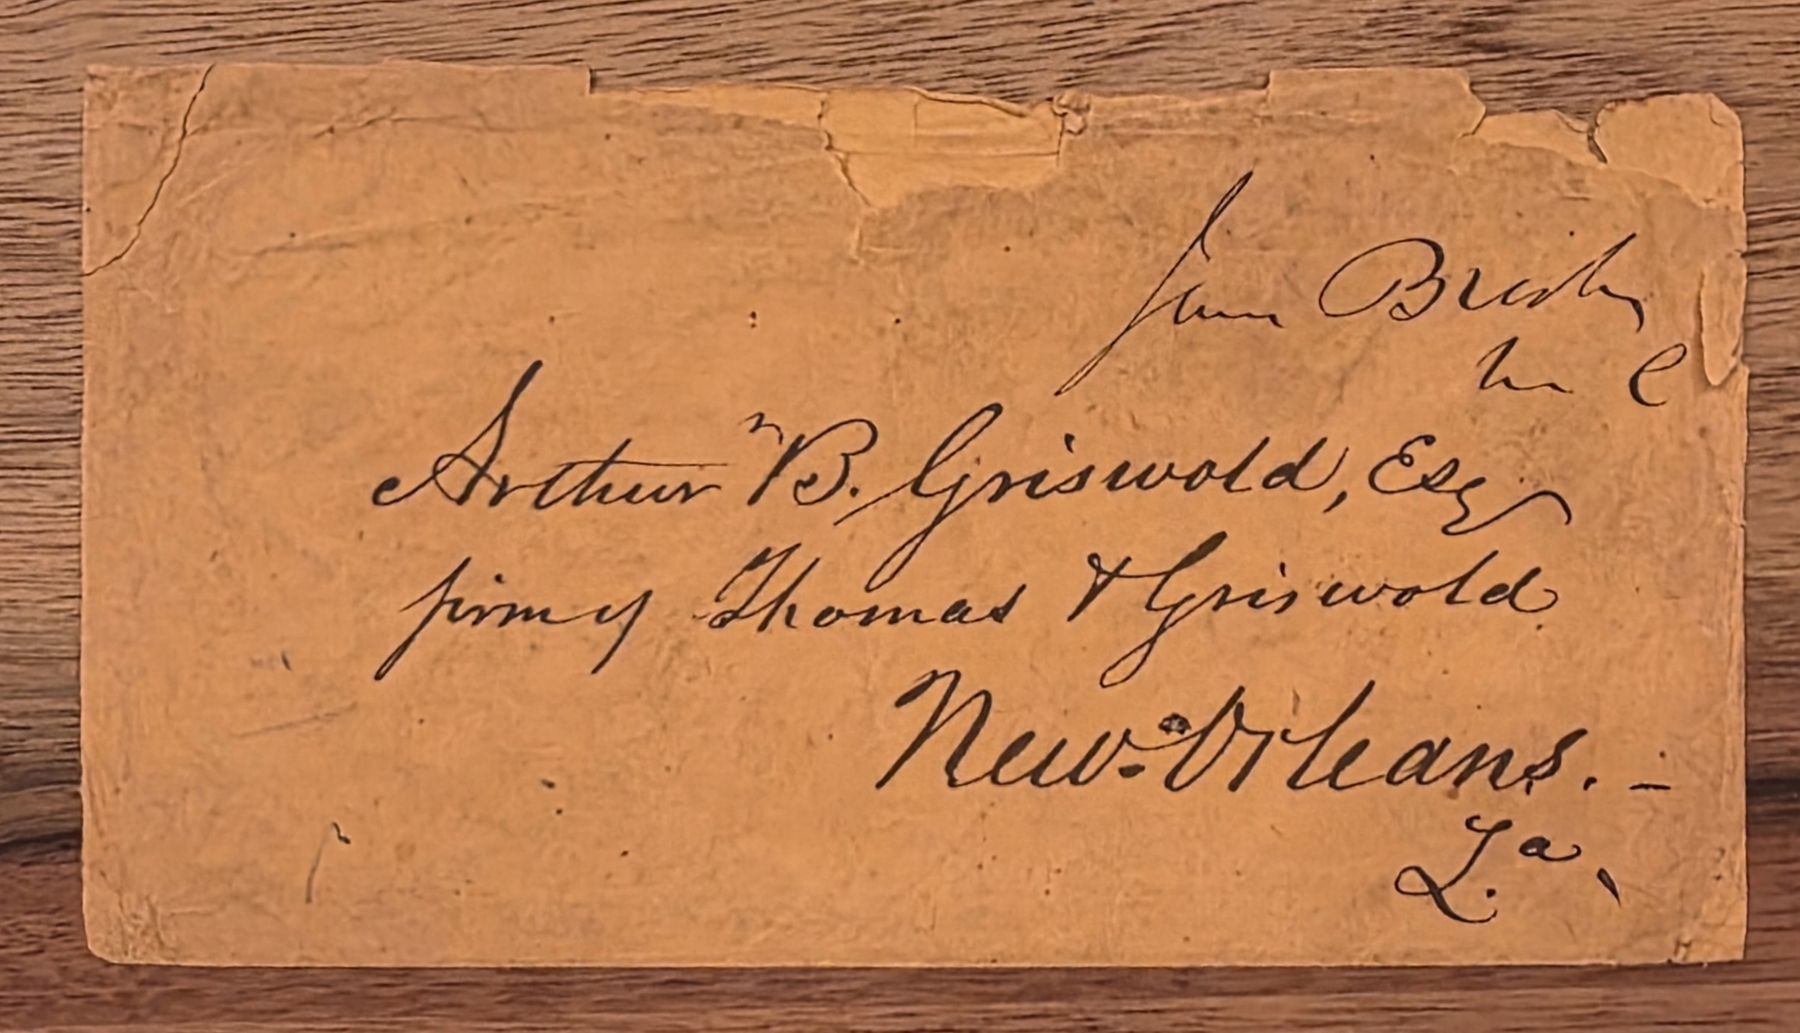 Arthur B. Griswold, Esq
firm of Thomas & Griswold
New-Orleans. -
La,